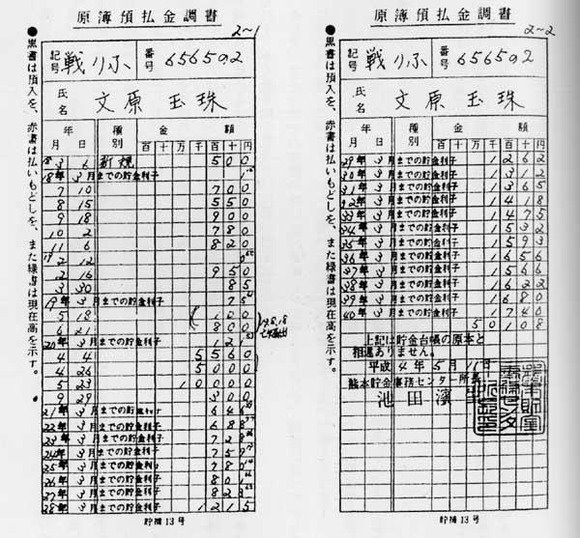 原簿預払金調書
2~1
●黒書は預入を、赤書は払いもどしを、また緑書は現在高を示す。
記号 戦りふ 番号 656502
氏名 文原玉珠
年月日 種別 金額
百 十 万 千 百 十 円
18 3 6 新規 500
18年 3月までの貯金利子 1
7 10 700
8 15 550
9 18 900
10 2 780
11 6 820
19 2 12 0
2 16 950
3 30 85
19年 3月までの貯金利子 75
5 18 100
6 21 800
20年 3月までの貯金利子 121
4 4 5560
4 26 5000
5 23 10000
9 29 300
21年 3月までの貯金利子
22年 3月までの貯金利子 688
23年 3月までの貯金利子 728
24年 3月までの貯金利子 759
25年 3月までの貯金利子 780
26年 3月までの貯金利子 801
27年 3月までの貯金利子 823
28年 3月までの貯金利子 1215
貯閲13号
原簿預払金調書
2~2
●黒書は預入を、赤書は払いもどしを、また緑書は現在高を示す。
記号 戦りふ 番号 656502
氏名 文原玉珠
年月日 種別 金額
百 十 万 千 百 十 円
29年 3月までの貯金利子 1262
30年 3月までの貯金利子 1312
31年 3月までの貯金利子 1365
32年 3月までの貯金利子 1418
33年 3月までの貯金利子 1475
34年 3月までの貯金利子 1532
35年 3月までの貯金利子 1593
36年 3月までの貯金利子 1656
37年 3月までの貯金利子 1566
38年 3月までの貯金利子 1566
39年 3月までの貯金利子 1680
40年 3月までの貯金利子 1746
50108
上記は貯金台帳の原本と
相違ありません。
平成4年5月 日
熊本貯金事務センター所長
池田濱
貯閲13号